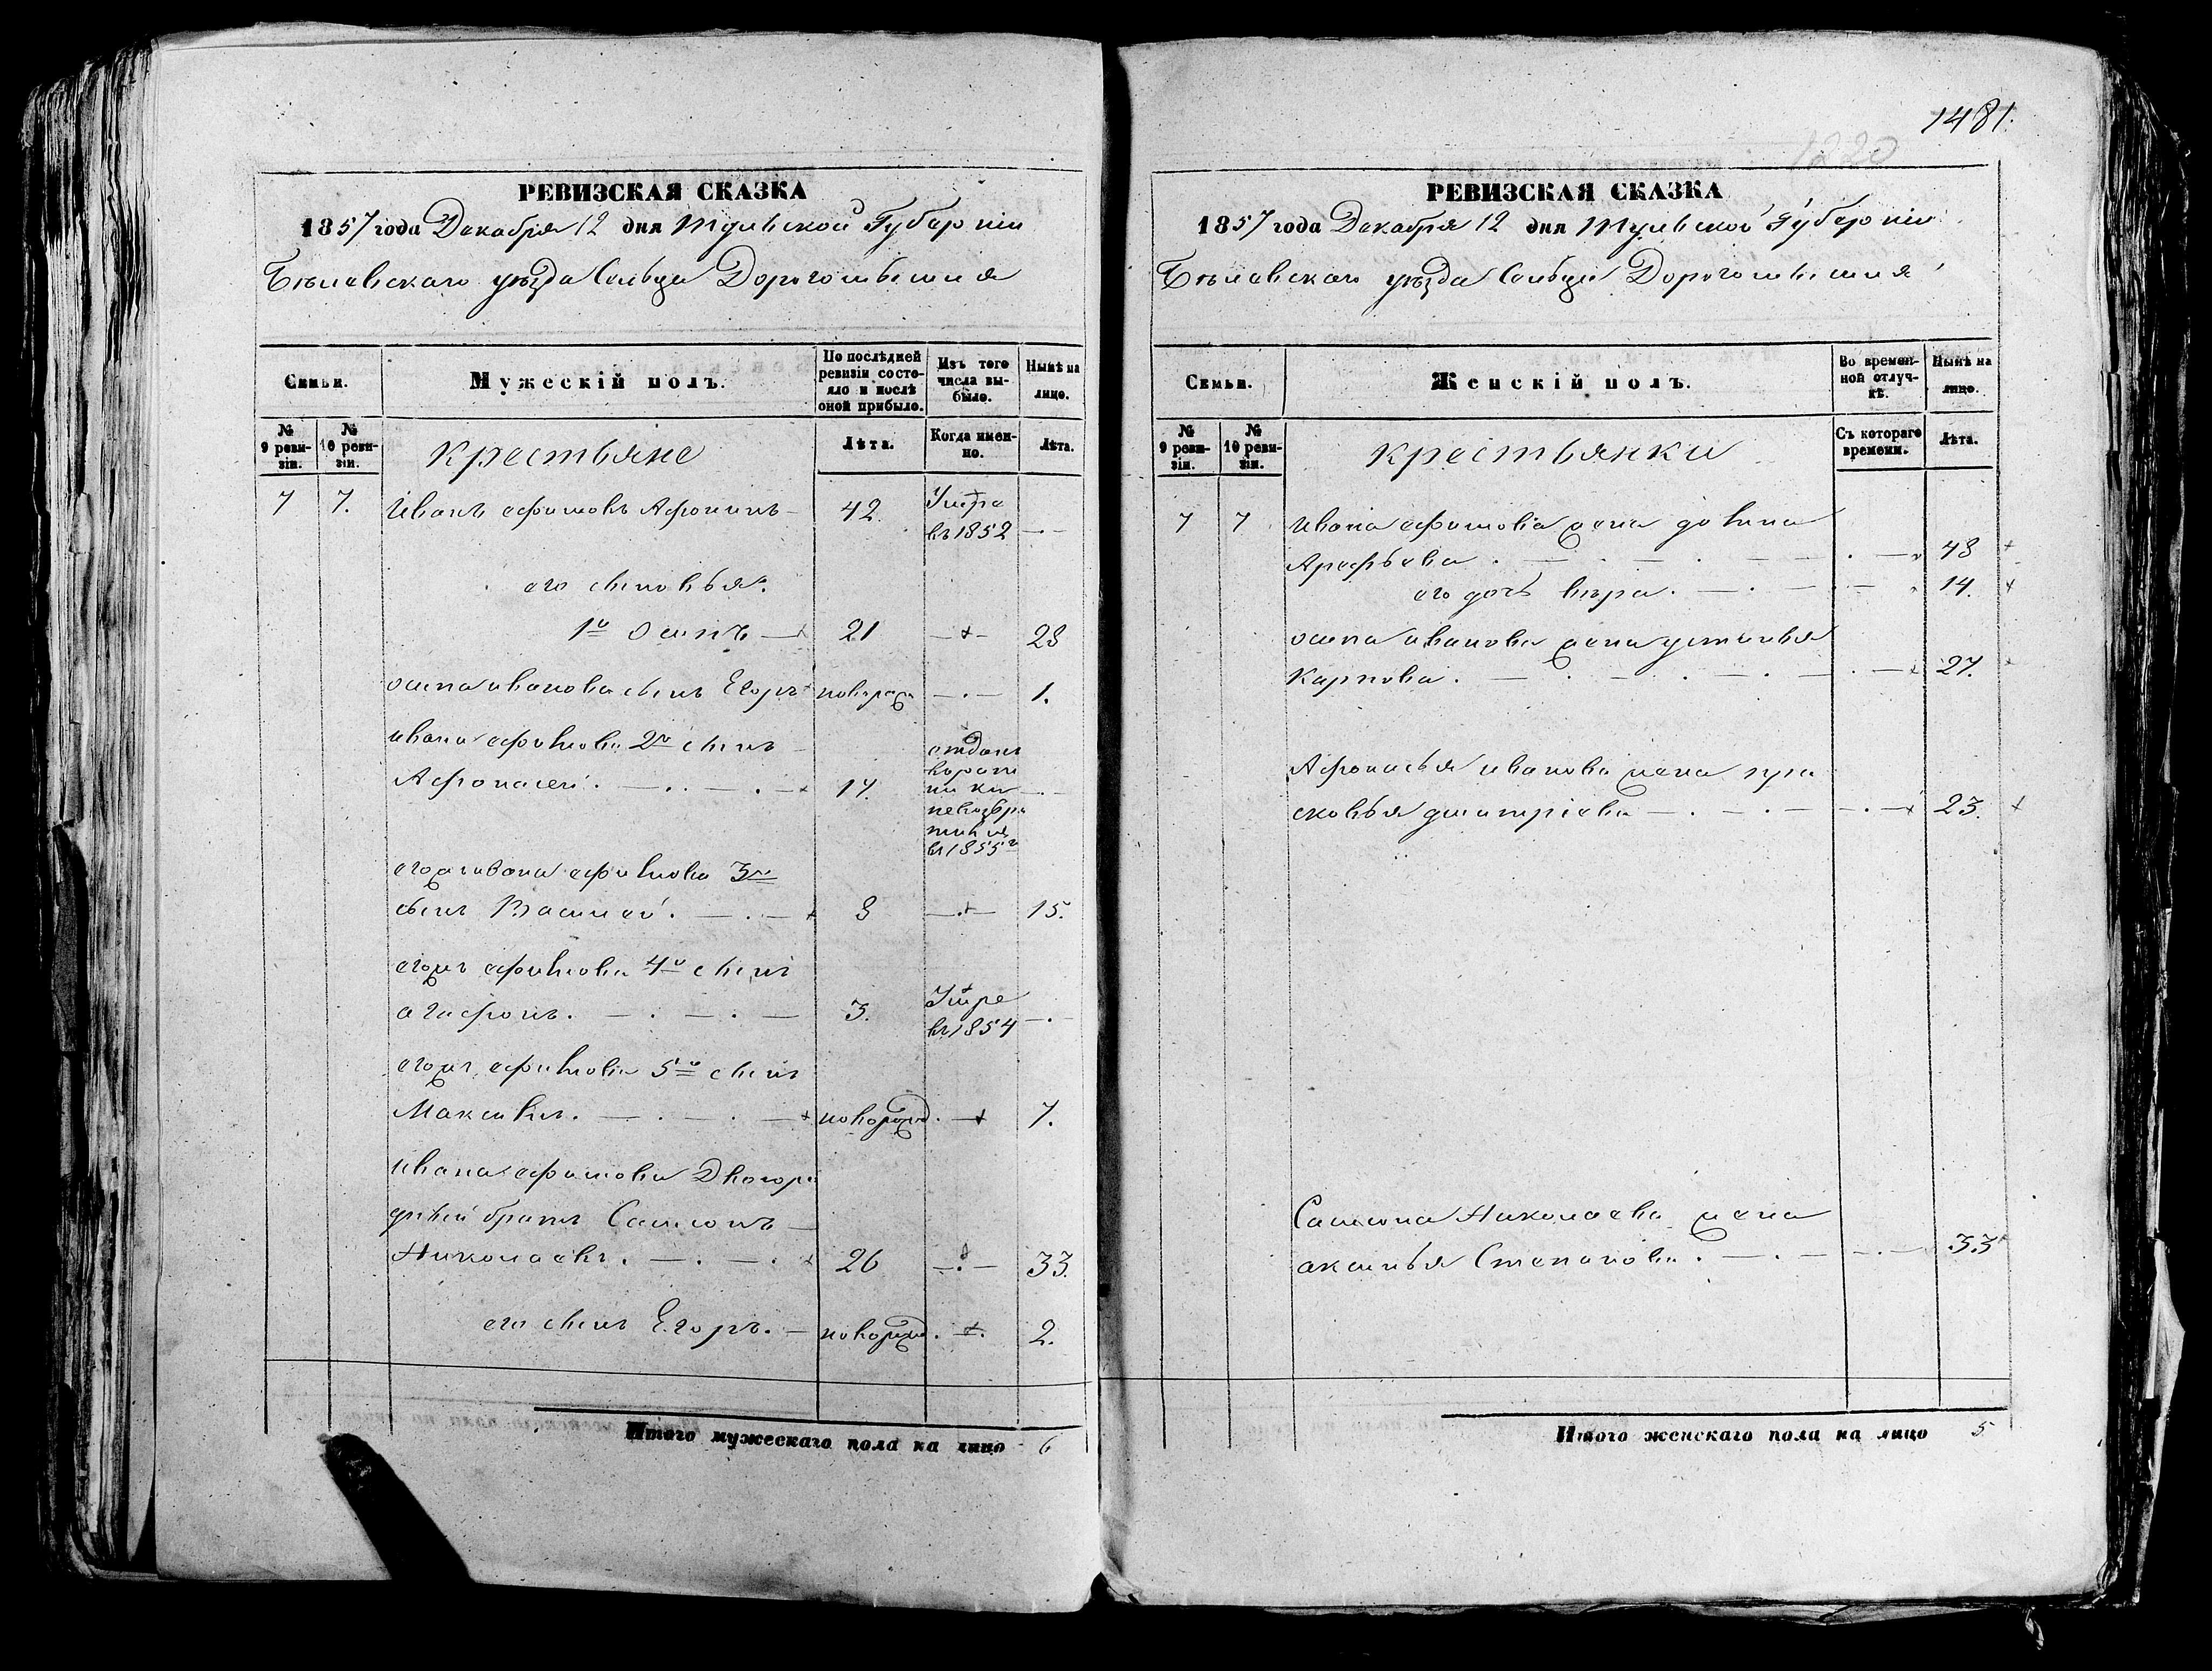 РЕВИЗСКАЯ СКАЗКА
1857 года Декабря 12 дня Тульской Губерніи
Бѣлевскаго уѣзда Сельца Дорогомышля
Семьи.
Мужескій полъ.
По послѣдней ревизіи состояло и послѣ оной прибыло.
Изъ того числа выбыло.
Нынѣ на лицо.
№ 9 ревизіи.
№ 10 ревизіи.
крестьяне
Лѣта.
Когда именно.
Лѣта.
7 7. Иванъ ефимовъ Афонинъ 42. Умре
въ 1852
его сыновья.
1й осипъ 21 28
осипа иванова сынъ Егоръ новорож 1.
ивана ефимова 2й сынъ
Афонасей. 17.
отданъ
в 1855г
егожъ ивана ефимова 3й
сынъ Василей. 8 15.
егожъ ефимова 4й сынъ
агафонъ. 3. Умре
въ 1854
егожъ ефимова 5й сынъ
Максимъ. новорожд. 7.
ивана ефимова Двоюро
дный братъ Самсонъ
Николаевъ. 26 33.
его сынъ Егоръ. новорожд. 2.
Итого мужескаго пола на лицо 6
1481.
1220
РЕВИЗСКАЯ СКАЗКА
1857 года Декабря 12 дня Тульской Губерніи
Бѣлевскаго уѣзда Сельца Дорогомышля
Семьи.
Женскій полъ.
Во временной отлучкѣ.
Нынѣ на лицо.
№ 9 ревизіи.
№ 10 ревизіи.
крестьянки
Съ котораго времени.
Лѣта.
7 7 Ивана ефимова жена
Арефьева. 48
его дочь вѣра. 14.
осипа иванова жена устинья
Карпова. 27.
Афонасья иванова жена пра
сковья дмитріева 23.
Самсона Николаева жена
аксинья Степанова. 33
Итого женскаго пола на лицо 5